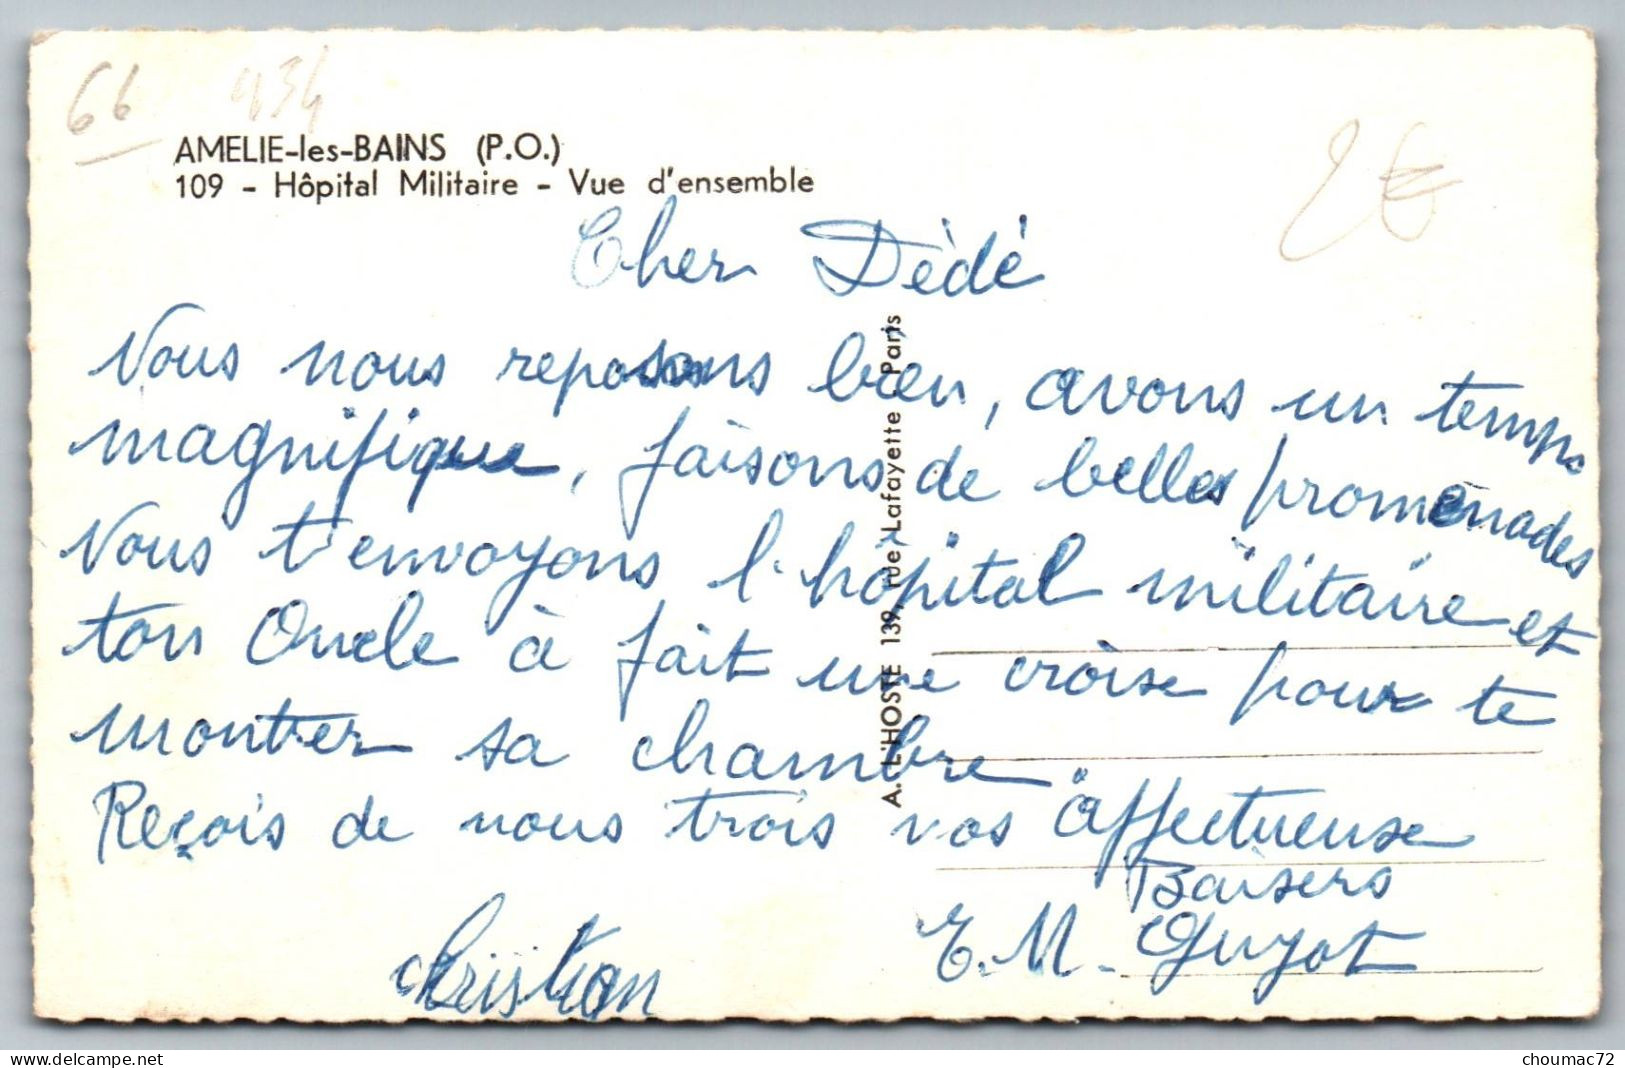 66 434
AMELIE-les-BAINS (P.O.)
109 - Hôpital Militaire - Vue d'ensemble
2€
Cher Dèdé
Nous nous reposons bien, avons un temps
magnifique, faisons de belles promenades
Nous t'envoyons l'hôpital militaire et
ton Oncle à fait une croise pour te
montrer sa chambre
Reçois de nous trois nos affectueuse
Baisers
E.M. Guyot
Christian
A. L'HOSTE 139, rue Lafayette Paris
choumac72